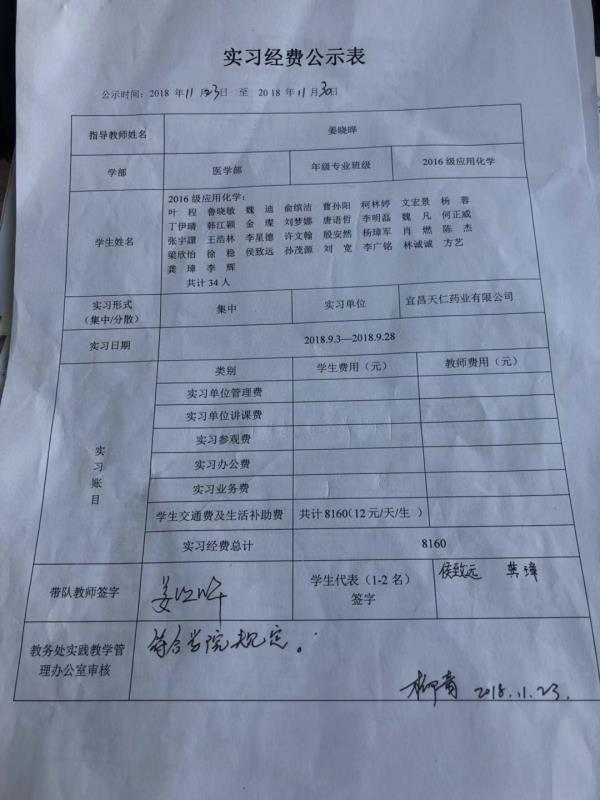 实习经费公示表
公示时间：2018 年 11 月 23 日 至 2018 年 11 月 30 日
指导教师姓名 姜晓晔
学部 医学部 年级专业班级 2016 级应用化学
学生姓名
2016 级应用化学：
叶 程 鲁晓敏 魏 迪 俞缤洁 曹孙阳 柯林婷 文宏景 杨 蓉
丁伊晴 韩江颖 金 璨 刘梦娜 唐语哲 李明磊 魏 凡 何正威
张宇譞 王浩林 李星德 许文翰 殷安然 杨璋军 肖 燃 陈 杰
梁欣怡 徐 稳 侯致远 孙茂源 刘 宽 李广铭 林诚诚 方艺
龚 璋 李 辉
共计 34 人
实习形式（集中/分散） 集中 实习单位 宜昌天仁药业有限公司
实习日期 2018.9.3—2018.9.28
实习账目
类别 学生费用（元） 教师费用（元）
实习单位管理费
实习单位讲课费
实习参观费
实习办公费
实习业务费
学生交通费及生活补助费 共计 8160（12 元/天/生 ）
实习经费总计 8160
带队教师签字 学生代表（1-2 名）签字 侯致远 龚璋
教务处实践教学管理办公室审核
符合学院规定。
柳青 2018.11.23.